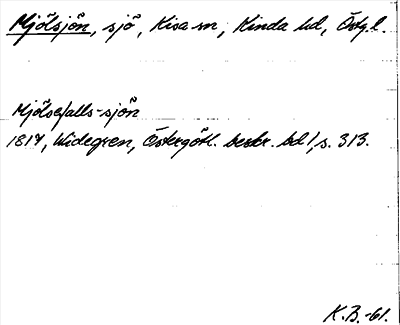 Mjölsjön, sjö, Kisa sn, Kinda hd, Östg.l.
Mjölsefalls-sjön
1817, Widegren, Östergötl. beskr. bd 1, s. 313.
K.B.-61.